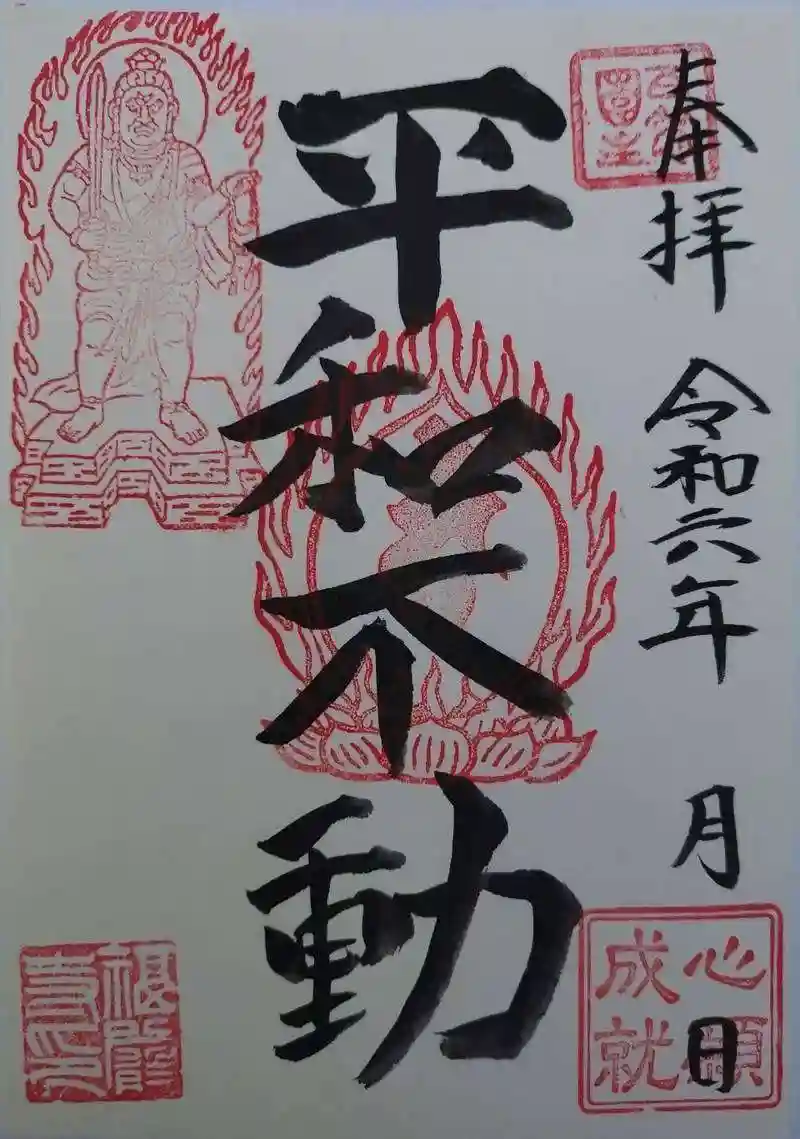 奉拝 令和六年 月 日
平和不動
心願
成就